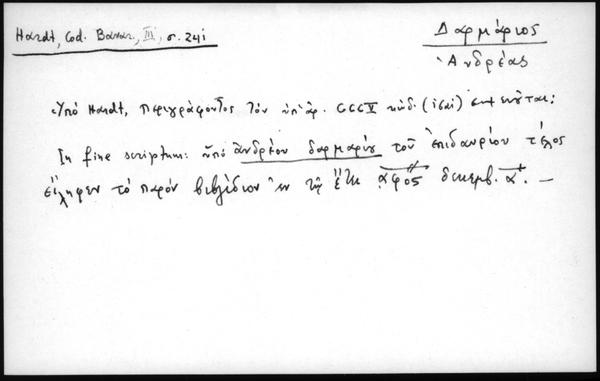 Hardt, Cod. Bavar, III, σ. 241
Δαρμάριος
Ἀνδρέας
Ὑπὸ Hardt, περιγράφοντος τὸν ὑπ' ἀρ. CCCV κώδ.
In fine scriptum: ὑπὸ ἀνδρέου δαρμαρίου τοῦ ἐπιδαυρίου τέλος
εἴληφεν τὸ παρὸν βιβλίδιον ἐν τῇ ἔτει ͵αφοϛ δεκεμβ. α. —